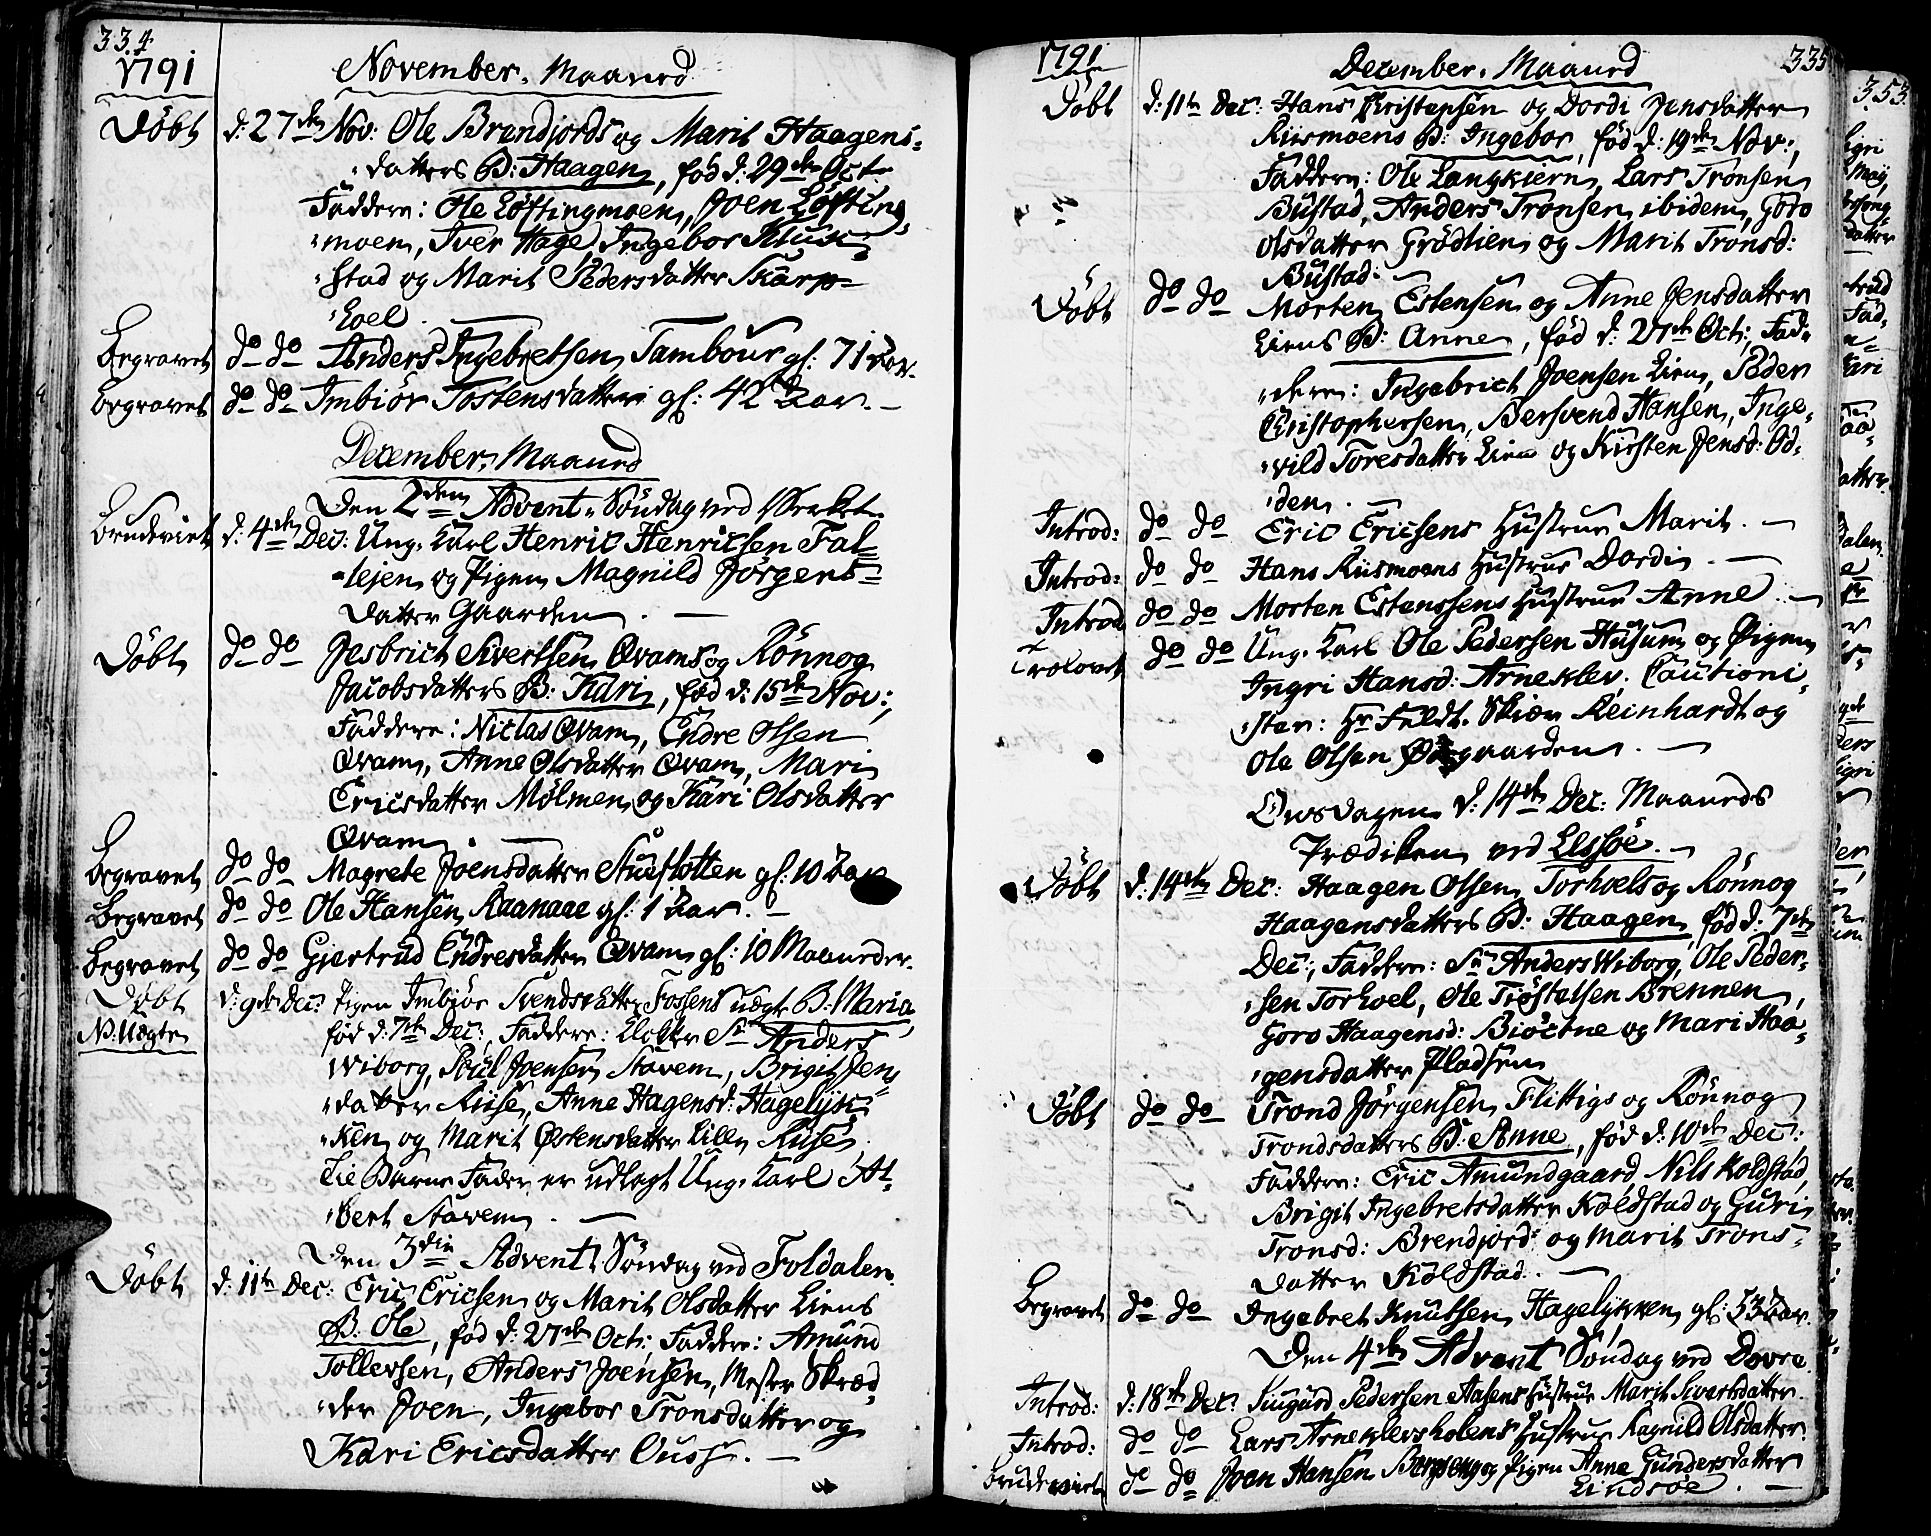 334
1791
November, Maaned
Döbt d: 27de Nov: Ole Brendjords og Marit Haagens-
datters B: Haagen, fød d: 29de Oct:
Faddere: Ole Løftingmoen, Joen Løfting
moen, Iver Hage, Ingebor Kluk
stad og Marit Pedersdatter Skarp-
hoel.
Begravet do do Anders Ingebretsen Tambour gl: 71 Aar.
Begravet do do Imbiør Tostensdatter gl: 42 Aar. -
December, Maaned
Den 2den Advent-Söndag ved Verket
Brudeviet d: 4de Dec: Ung. Karl Henric Henricsen Fal-
lejen og Pigen Magnild Jørgens-
datter Gaarden.
Döbt do do Jesbrich Sivertsen Qvams og Rönnog
Jacobsdatters B: Kari, fød d: 15de Nov:,
Faddere: Niclas Qvam, Endre Olsen
Qvam, Anne Olsdatter Qvam, Mari
Ericsdatter Mølmen og Kari Olsdatter
Qvam.
Begravet do do Magrete Joensdatter Stueflotten gl: 10 Aar
Begravet do do Ole Hansen Raanaae gl: 1 Aar. -
Begravet do do Gjertrud Endresdatter Qvam gl: 10 Maaneder.
Döbt d: 9de Dec: Pigen Imbiør Svendsdatter Fossens uægte B: Maria
N: Uægte
fød d: 7de Dec:, Faddere: Klokker Sr Anders
Wiborg, Poul Joensen Stavem, Brigit Jens
datter Riise, Anne Hagensd: Hagelyk-
ken og Marit Østensdatter Lille Riise.
Til Barne Fader er udlagt Ung. Karl Al-
bert Stavem.
Den 3die Advent Söndag ved Foldalen
Döbt d: 11te Dec: Eric Ericsen og Marit Olsdatter Liens
B: Ole, fød d: 27de Oct:, Faddere: Amund
Tollevsen, Anders Joensen, Mester Skræd-
der Joen, Ingebor Tronsdatter og
Kari Ericsdatter Ouss.
1791
December, Maaned
335
Döbt d: 11te Dec: Hans Christophsen og Dordi Jensdatter
Riismoens B: Ingebor, fød d: 19de Nov:,
Faddere: Ole Langkiern, Lars Tronsen
Bustad, Anders Tronsen ibidem, Goro
Olsdatter Grødlien og Marit Tronsd:
Bustad.
Döbt do do Morten Estensen og Anne Jensdatter
Liens B: Anne, fød d: 27de Oct:, Fad-
dere: Ingebrict Joensen Lien, Peder
Christophersen, Bersvend Hansen, Inge-
vild Toresdatter Lien og Kirsten Jensd: Od-
den.
Introd: do do Eric Ericsens Hustrue Marit. -
Introd: do do Hans Riismoens Hustrue Dordi. -
Introd do do Morten Estenssens Hustrue Anne. -
Trolovet do do Ung. Karl Ole Pedersen Husum og Pigen
Ingri Hansd: Arneklev. Cautioni-
ster: Hr Feldt-Skiær Reinhardt og
Ole Olsen Øigaarden.
Onsdagen d: 14de Dec: Maaneds
Prædiken ved Lessøe.
Döbt d: 14de Dec: Haagen Olsen Torhoels og Rönnog
Haagensdatters B: Haagen, fød d: 7de
Dec:, Faddere: Sr Anders Wiborg, Ole Peder-
sen Torhoel, Ole Tiøstelsen Brennen,
Goro Haagensd: Biöctne og Mari Haa-
gensdatter Pladsen
Döbt do do Trond Jørgensen Flittigs og Rönnog
Trondsdatters B: Anne, fød d: 10de Dec:,
Faddere: Eric Amundgaard, Nils Koldstad,
Brigit Ingebretsdatter Koldstad og Guri
Tronsd: Brendjord og Marit Trons-
datter Koldstad.
Begravet do do Ingebret Knutsen Hagelykken gl: 53 Aar.
Den 4de Advent Söndag ved Dovre
Introd: d: 18de Dec: Siugurd Pedersen Aasens Hustrue Marit Sivertsdatter
Introd: do do Lars Arneklevsholens Hustrue Ragnild Olsdatter.
Brudeviet do do Joen Hansen og Pigen Anne Gundersdatter
Lindsøe.
353